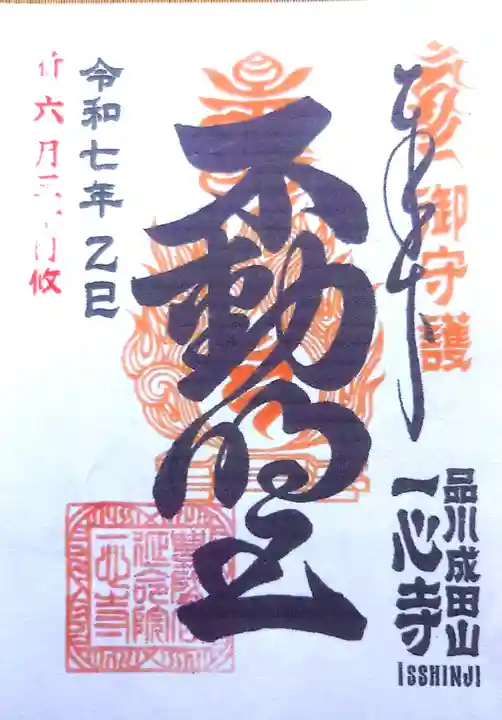 奉拝
御守護
品川成田山
一心寺
ISSHINJI
不動明王
令和七年乙巳
六月
豊盛山
延命院
一心寺